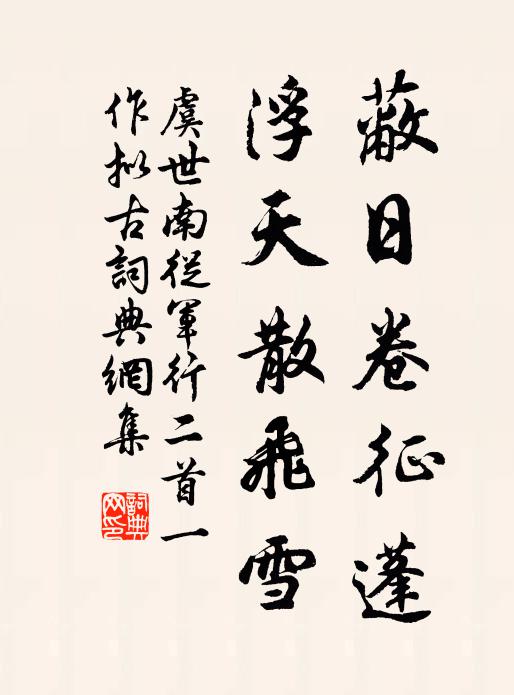 蔽日卷征蓬
浮天散飛雪
虞世南從軍行二首一
作拟古詞典網集
詞典网印